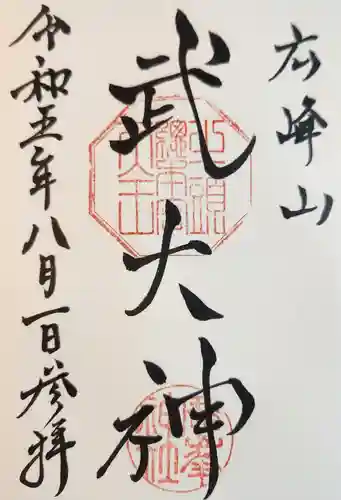 広峰山
武大神
令和五年八月一日参拝